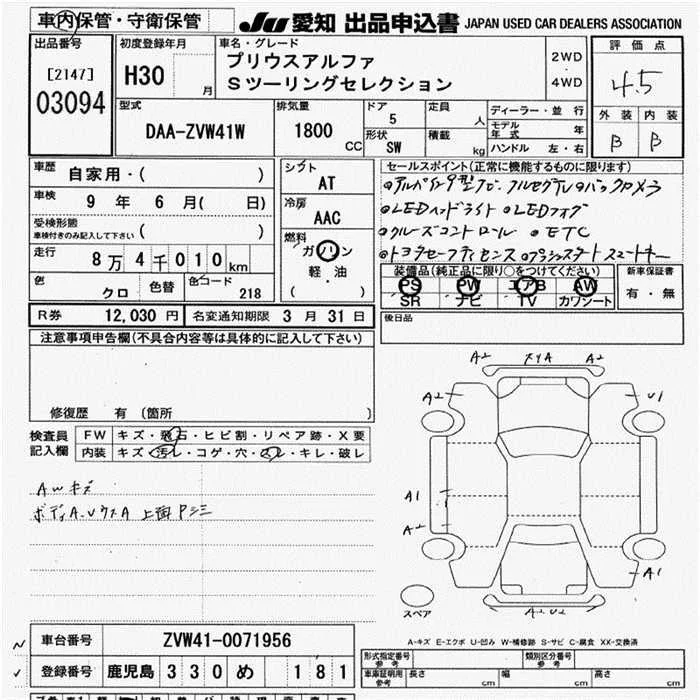 車内保管・守衛保管
JU 愛知 出品申込書 JAPAN USED CAR DEALERS ASSOCIATION
出品番号
[2147]
03094
初度登録年月
H30 月
車名・グレード
プリウスアルファ
Sツーリングセレクション
2WD
・
4WD
評価点
4.5
外装 内装
B B
型式
DAA-ZVW41W
排気量
1800 CC
ドア
5
形状
SW
定員
人
積載
kg
ディーラー・並行
モデル年式 年
ハンドル 左・右
車歴
自家用・( )
車検
9 年 6 月( 日)
受検形態
車検付きのみ記入して下さい ( )
走行
8万4千010km
色
クロ
色替
色コード
218
シフト
AT
冷房
AAC
燃料
ガソリン
軽・油
( )
セールスポイント(正常に機能するものに限ります)
◎アルパイン9型ナビ フルセグTV ◎バックカメラ
◎LEDヘッドライト ◎LEDフォグ
◎クルーズコントロール ◎ETC
◎トヨタセーフティセンス ◎プッシュスタート スマートキー
装備品(純正品に限り○をつけてください)
PS PW エアB AW
SR ナビ TV カワシート
新車保証書
有・無
後日品
R券 12,030 円 名変通知期限 3 月 31 日
注意事項申告欄(不具合内容等は具体的に記入して下さい)
修復歴 有 (箇所 )
検査員
記入欄
FW キズ・飛石・ヒビ割・リペア跡・X要
内装 キズ・汚レ・コゲ・穴・スレ・キレ・破レ
AWキズ
A2 A2
A2 U1
A1
A2
A1
A2 U2
スペア
A-キズ E-エクボ U-凹み W-補修跡 S-サビ C-腐食 XX-交換済
車台番号 ZVW41-0071956
登録番号 鹿児島 330 め 181
形式指定番号
参考
類別区分番号
参考
車庫証明用
参考
長さ cm 幅 cm 高さ cm